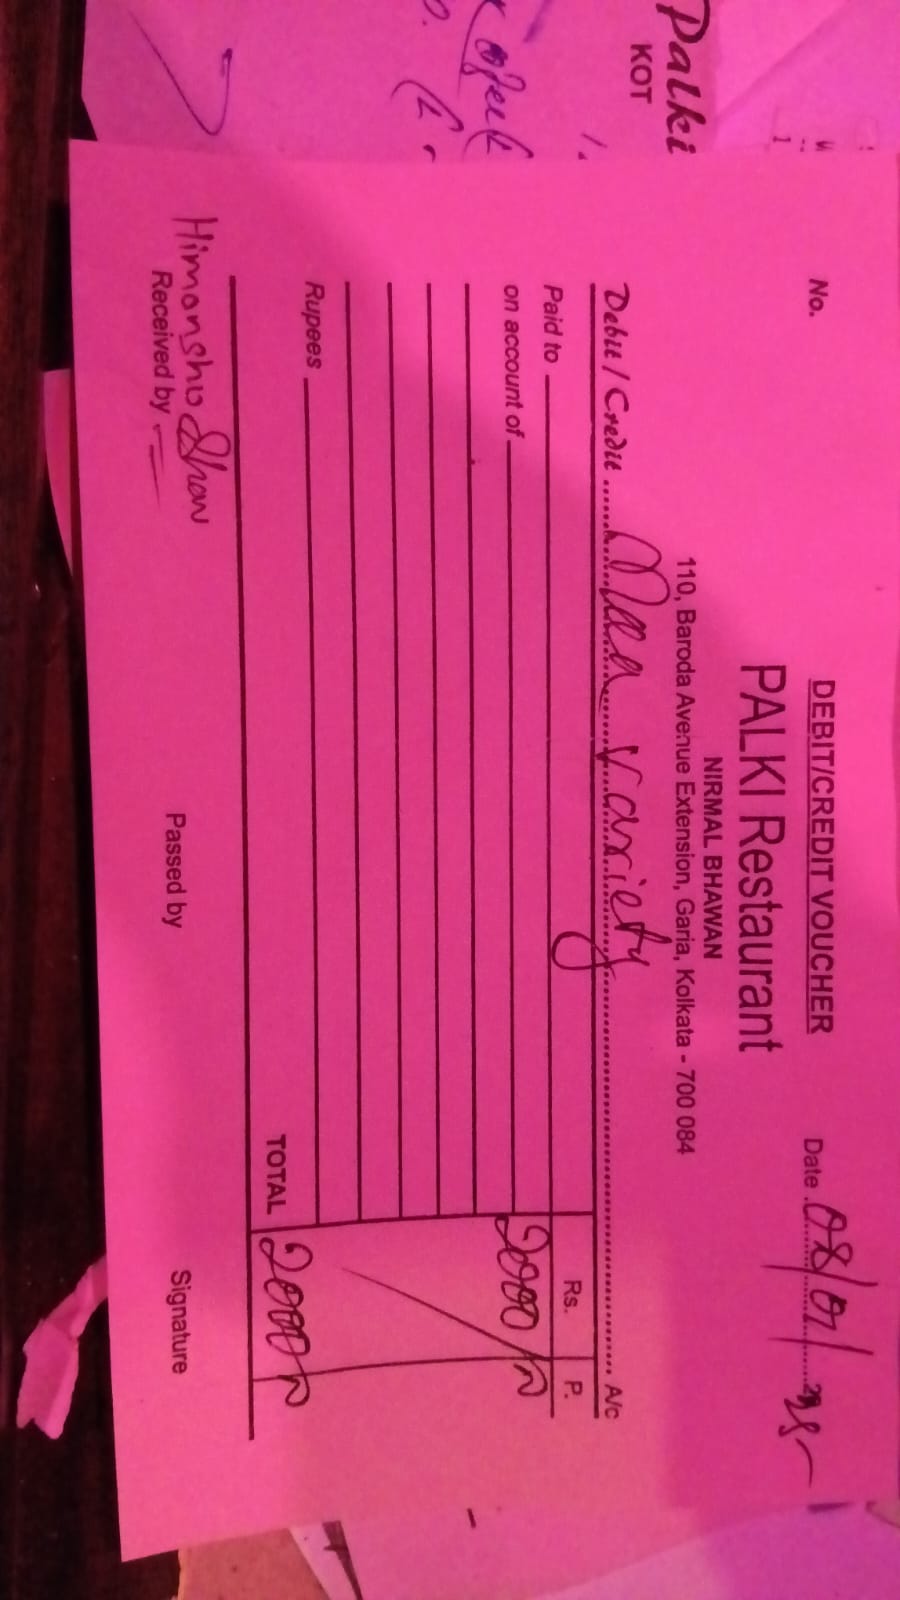 Palki
KOT
DEBIT/CREDIT VOUCHER
No.
Date 08/01/25
PALKI Restaurant
NIRMAL BHAWAN
110, Baroda Avenue Extension, Garia, Kolkata - 700 084
Debit / Credit ........ Maa Variety ........ A/c
Rs. P.
Paid to
on account of 2000/-
Rupees
TOTAL 2000/-
Himanshu Shaw
Received by Passed by Signature